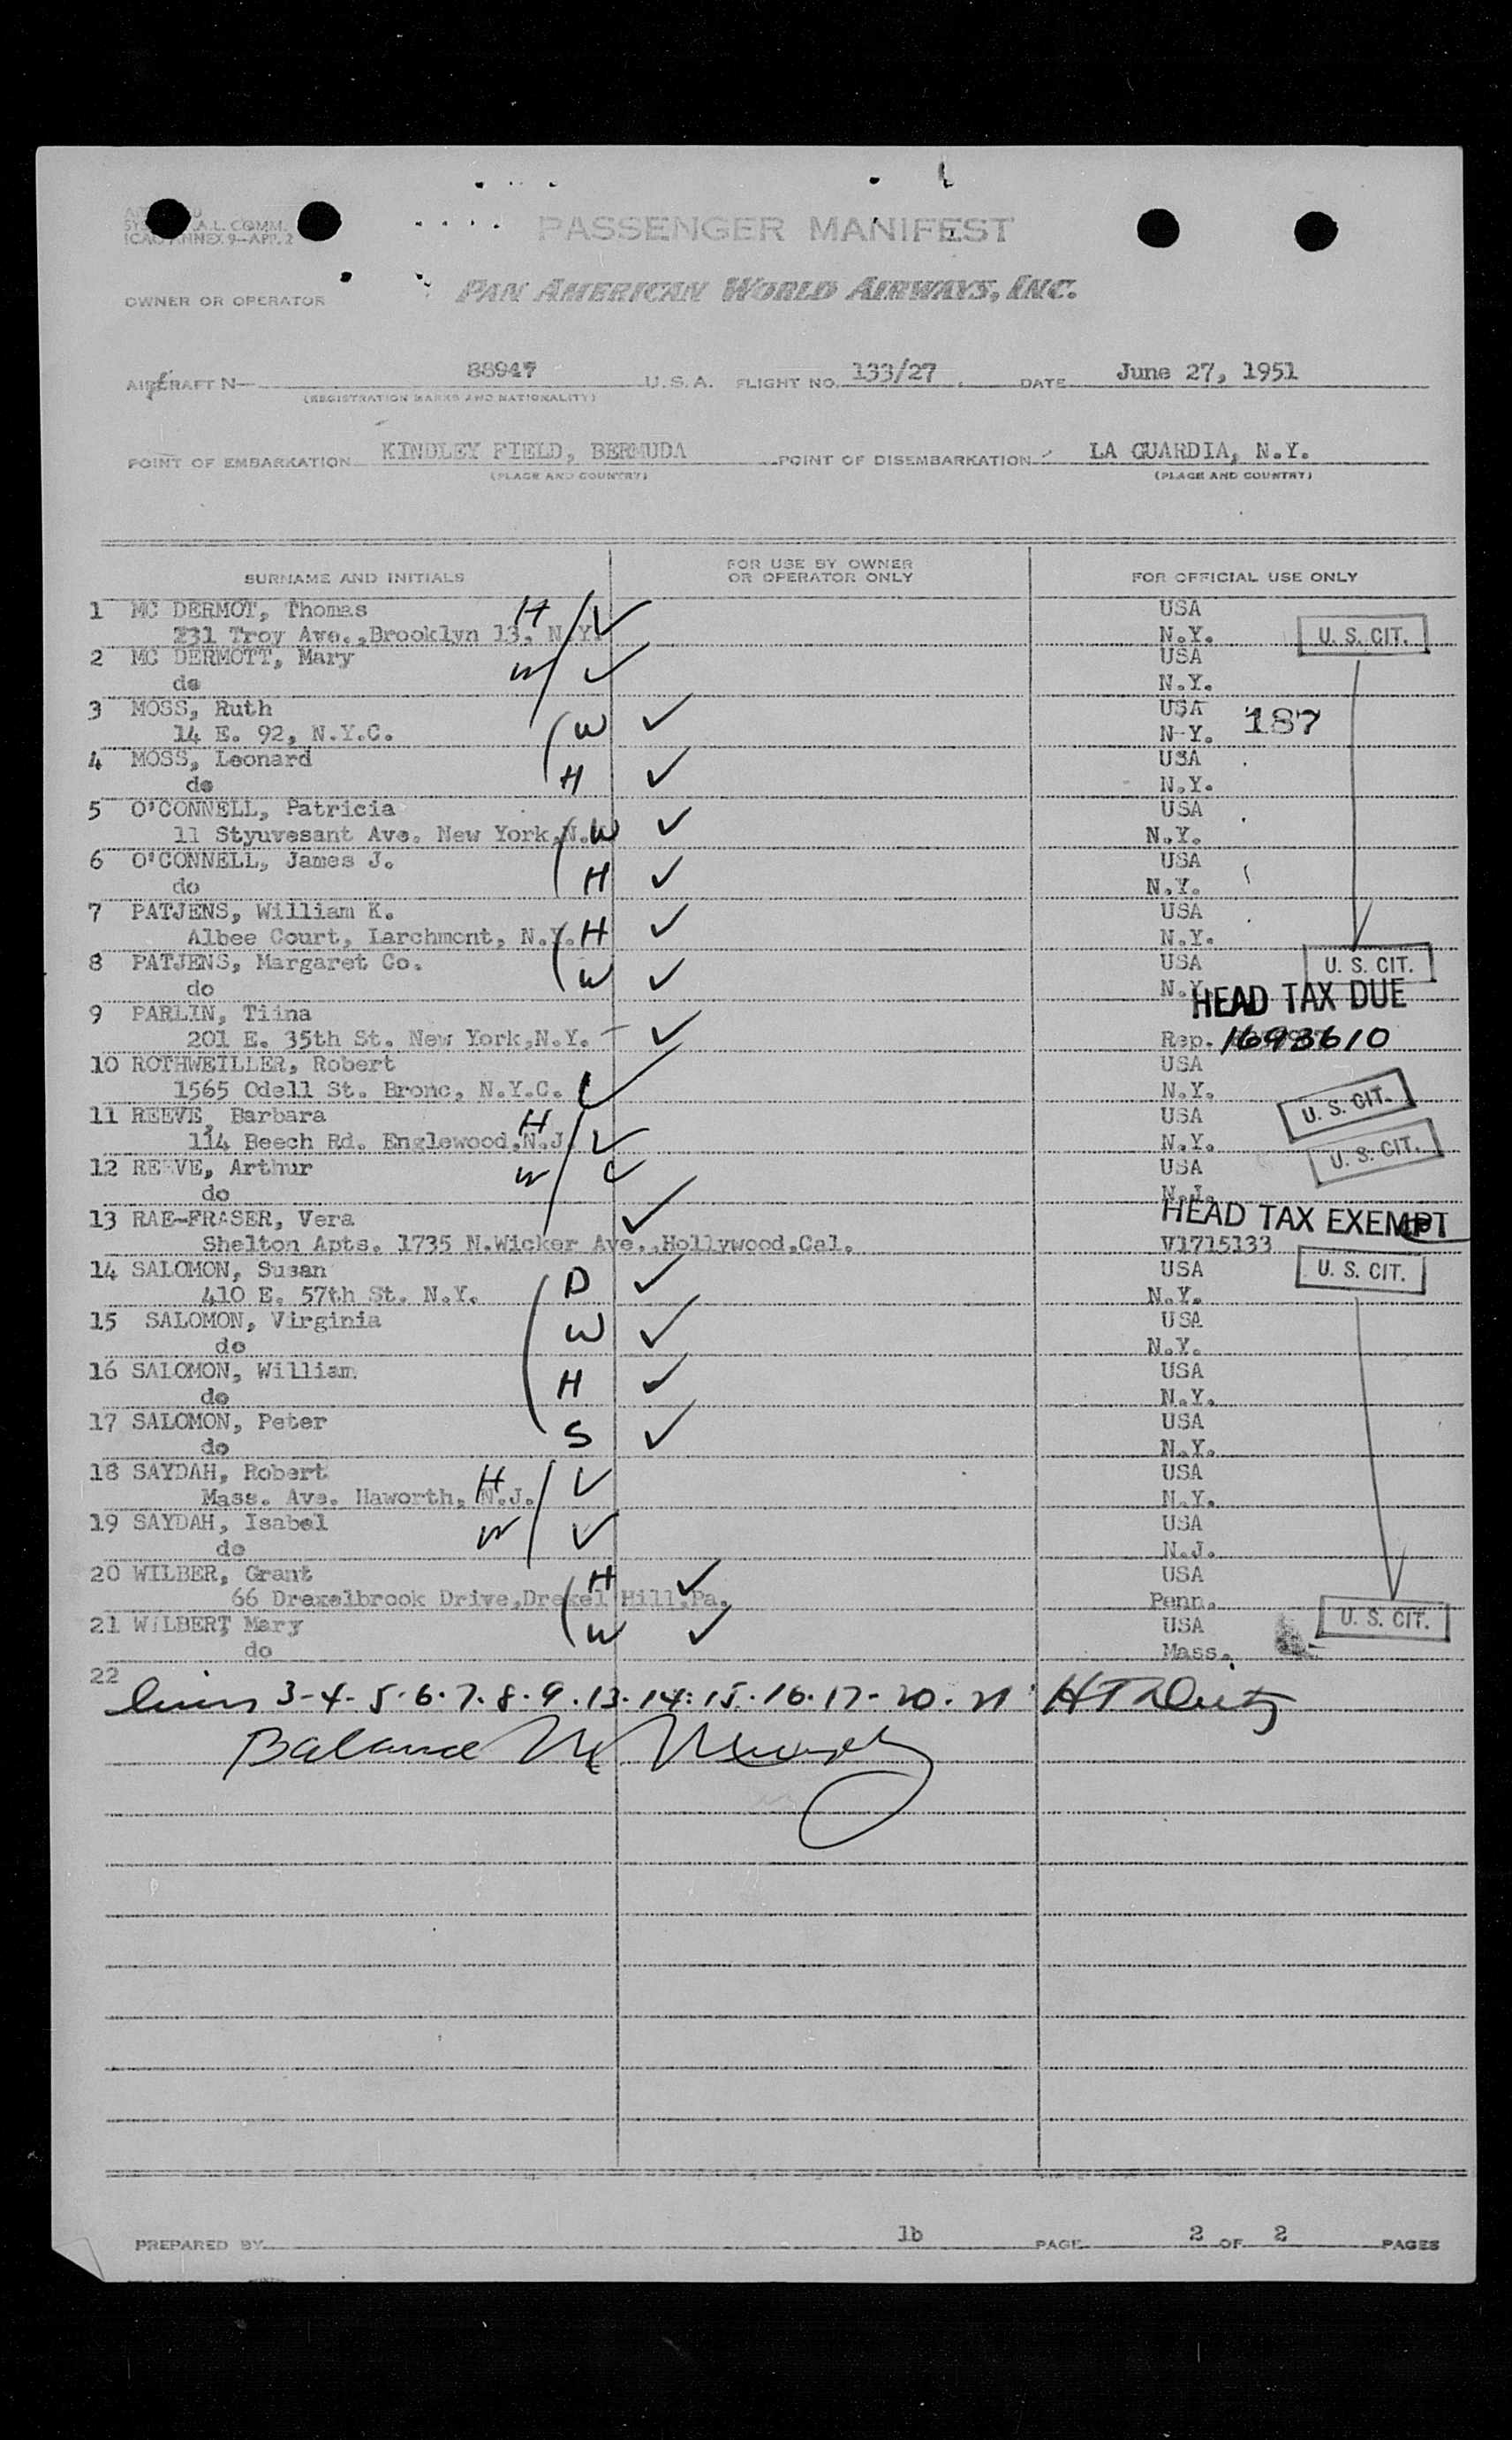 PASSENGER MANIFEST
A.L. COMM.
ICAO ANNEX 9-APP. 2
OWNER OR OPERATOR PAN AMERICAN WORLD AIRWAYS, INC.
AIRCRAFT N- 88947 U.S.A. FLIGHT NO. 133/27 DATE June 27, 1951
(REGISTRATION MARKS AND NATIONALITY)
POINT OF EMBARKATION KINDLEY FIELD, BERMUDA POINT OF DISEMBARKATION LA GUARDIA, N.Y.
(PLACE AND COUNTRY) (PLACE AND COUNTRY)
SURNAME AND INITIALS FOR USE BY OWNER OR OPERATOR ONLY FOR OFFICIAL USE ONLY
1 MC DERMOT, Thomas H ✓ USA
231 Troy Ave.,Brooklyn 13, N.Y. N.Y. U.S. CIT.
2 MC DERMOTT, Mary W ✓ USA
do N.Y.
3 MOSS, Ruth W ✓ USA 187
14 E. 92, N.Y.C. N-Y.
4 MOSS, Leonard H ✓ USA
do N.Y.
5 O'CONNELL, Patricia W ✓ USA
11 Styuvesant Ave. New York,N. N.Y.
6 O'CONNELL, James J. H ✓ USA
do N.Y.
7 PATJENS, William K. H ✓ USA
Albee Court, Larchmont, N.Y. N.Y.
8 PATJENS, Margaret Co. W ✓ USA U.S. CIT.
do N.Y.
HEAD TAX DUE
9 PARLIN, Tiina ✓
201 E. 35th St. New York,N.Y. Rep. 1693610
10 ROTHWEILLER, Robert ✓ USA
1565 Odell St. Bronc, N.Y.C. N.Y. U.S. CIT.
11 REEVE, Barbara H ✓ USA
114 Beech Rd. Englewood,N.J. N.Y. U.S. CIT.
12 REEVE, Arthur W ✓ USA
do N.J.
HEAD TAX EXEMPT
13 RAE-FRASER, Vera ✓
Shelton Apts. 1735 N.Wicker Ave.,Hollywood,Cal. V1715133
14 SALOMON, Susan D ✓ USA U.S. CIT.
410 E. 57th St. N.Y. N.Y.
15 SALOMON, Virginia W ✓ USA
do N.Y.
16 SALOMON, William H ✓ USA
do N.Y.
17 SALOMON, Peter S ✓ USA
do N.Y.
18 SAYDAH, Robert H ✓ USA
Mass. Ave. Haworth, N.J. N.Y.
19 SAYDAH, Isabel W ✓ USA
do N.J.
20 WILBER, Grant H ✓ USA
66 Drexelbrook Drive,Drexel Hill,Pa. Penn.
21 WILBERT Mary W ✓ USA U.S. CIT.
do Mass.
22
lines 3-4-5-6-7-8-9-13-14-15-16-17-20-21
Balance
PREPARED BY lb PAGE 2 OF 2 PAGES